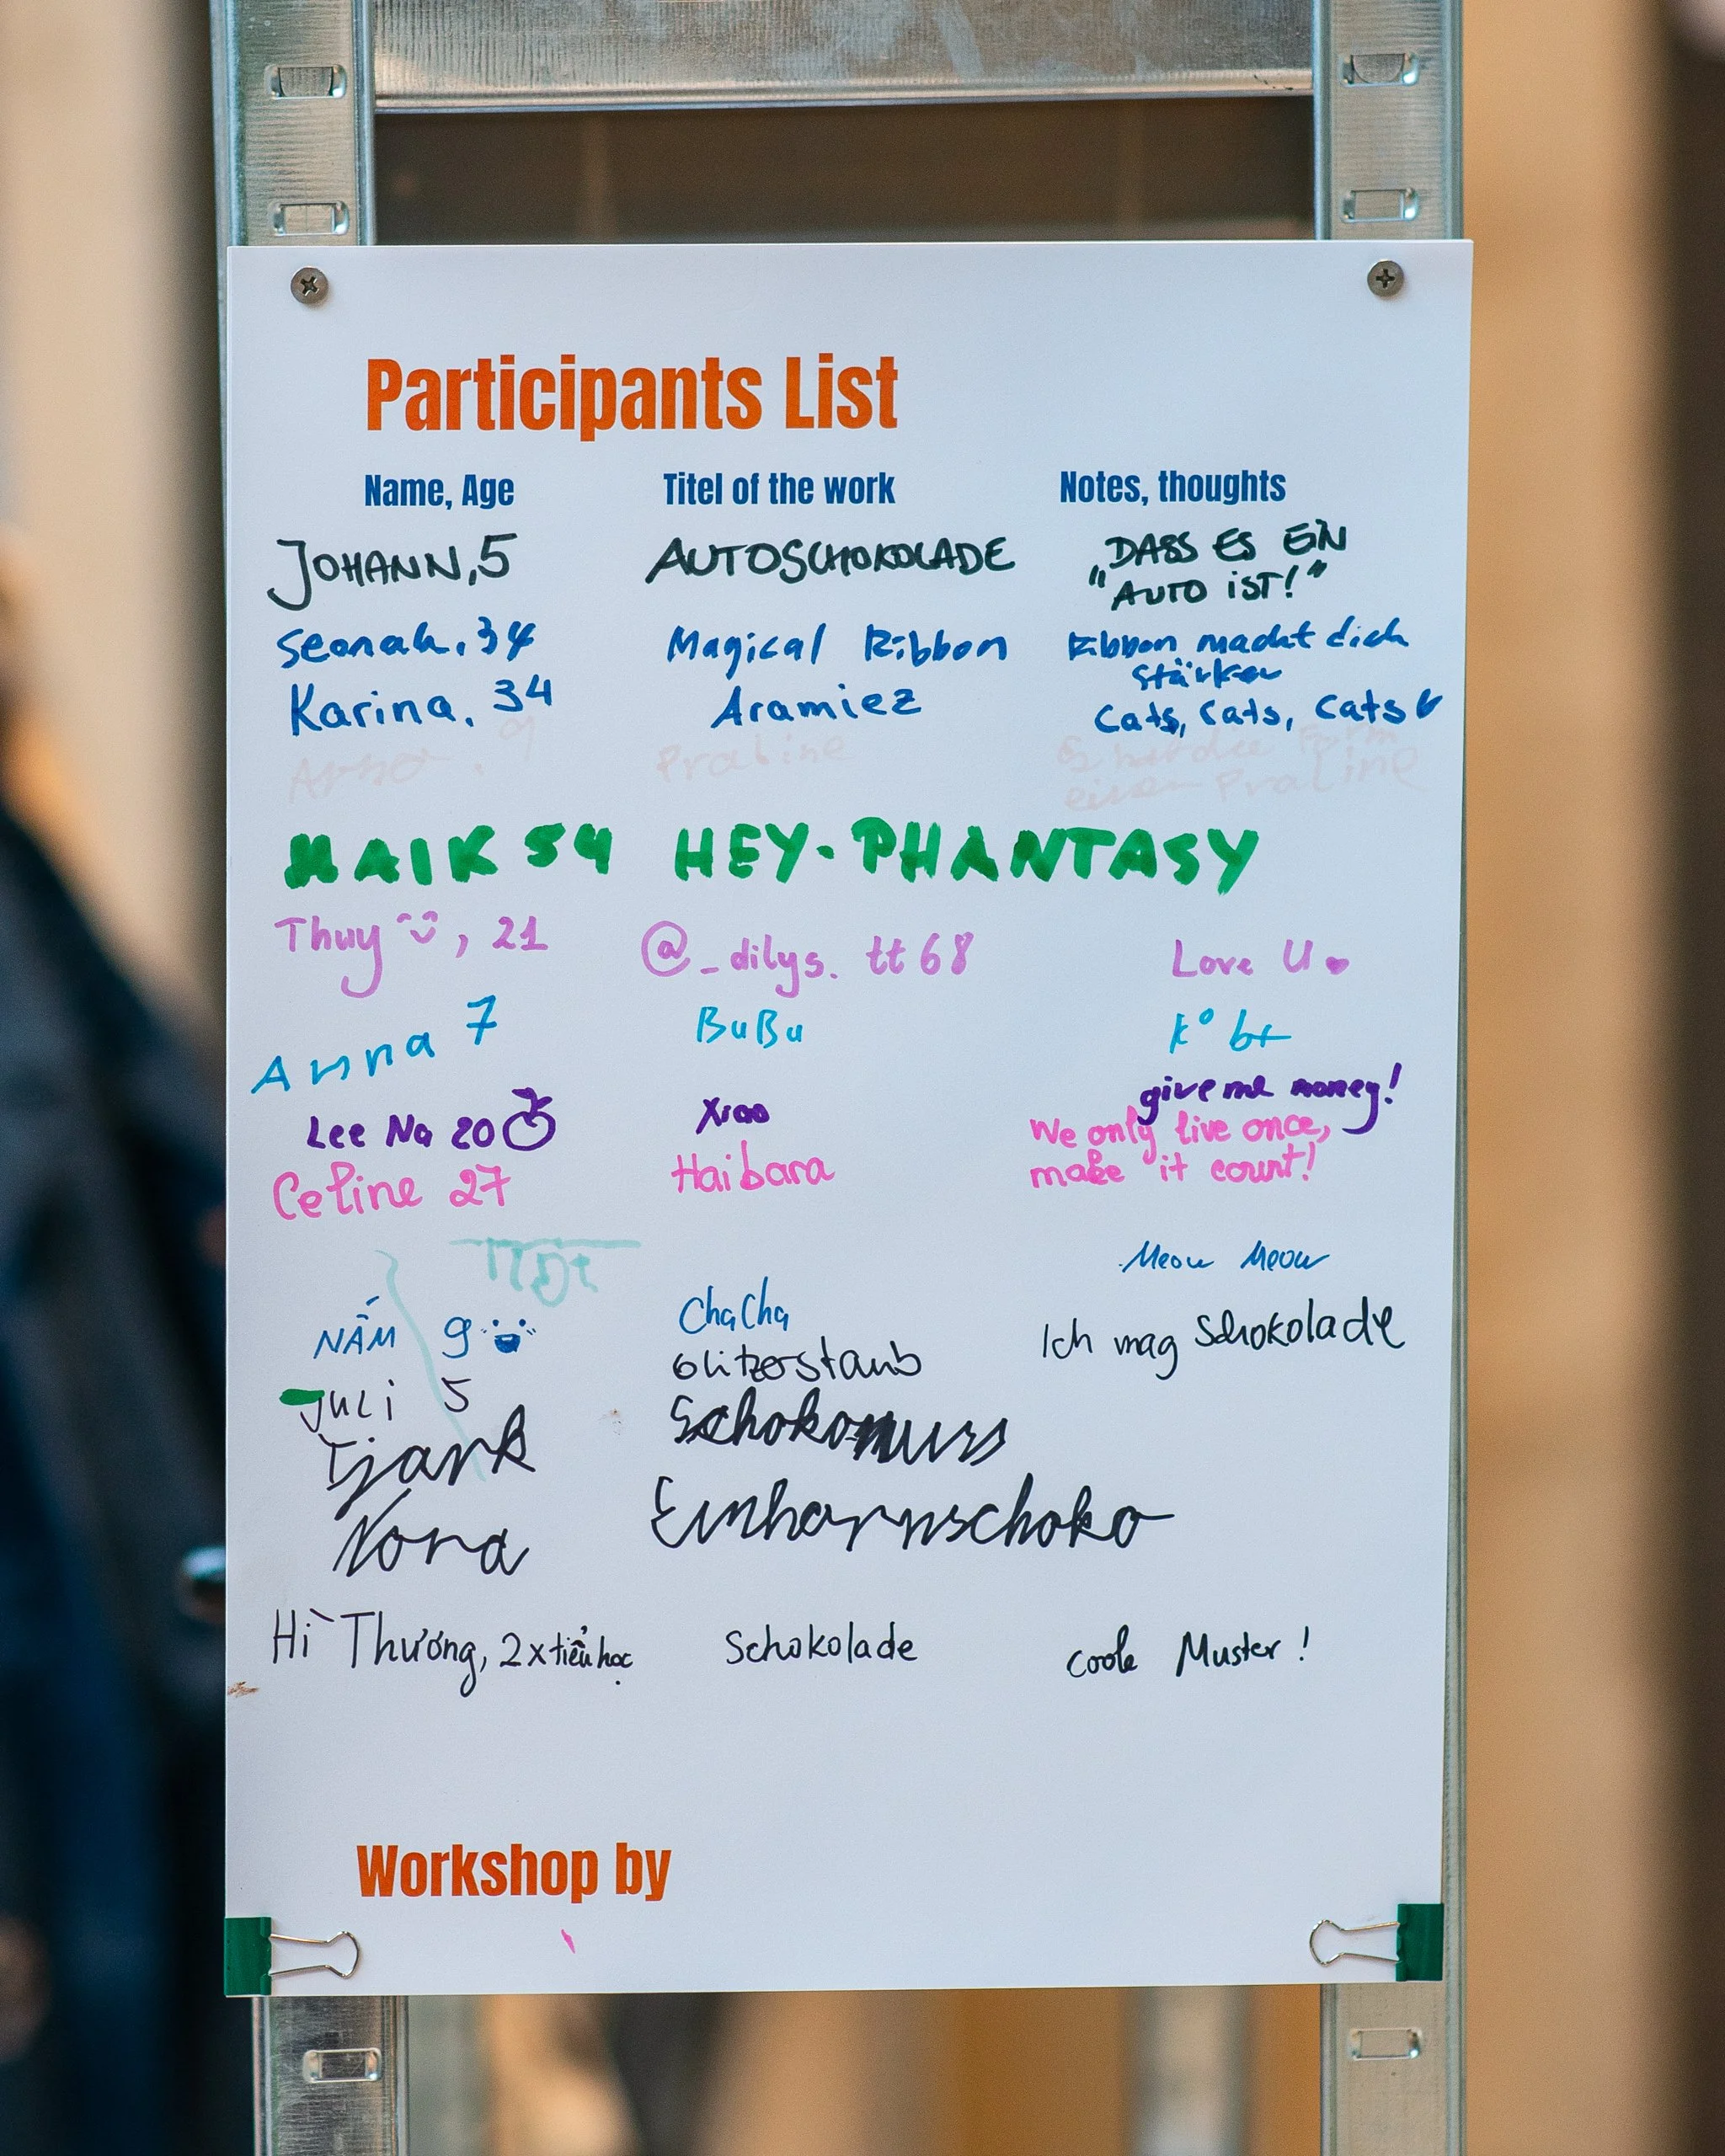 Participants List
Name, Age Titel of the work Notes, thoughts
JOHANN, 5 AUTOSCHOKOLADE „DASS ES EIN
"AUTO iST!"
Seonah, 34 Magical Ribbon Ribbon macht dich
stärker
Karina, 34 Aramiez Cats, Cats, Cats
9 Praline Es hat die Form
einer Praline
MAIK 54 HEY-PHANTASY
Thuy, 21 @_dilys.tt68 Love U
Anna 7 BuBu
Lee Na 20 Xiao give me money!
Celine 27 Haibara We only live once,
make it count!
Meow Meow
NẤM 9 ChaCha
Glitzerstaub Ich mag Schokolade
Juli 5
Tjark Schokonuss
Nora Einhornschoko
Hì Thương, 2x tiểu học Schokolade coole Muster!
Workshop by